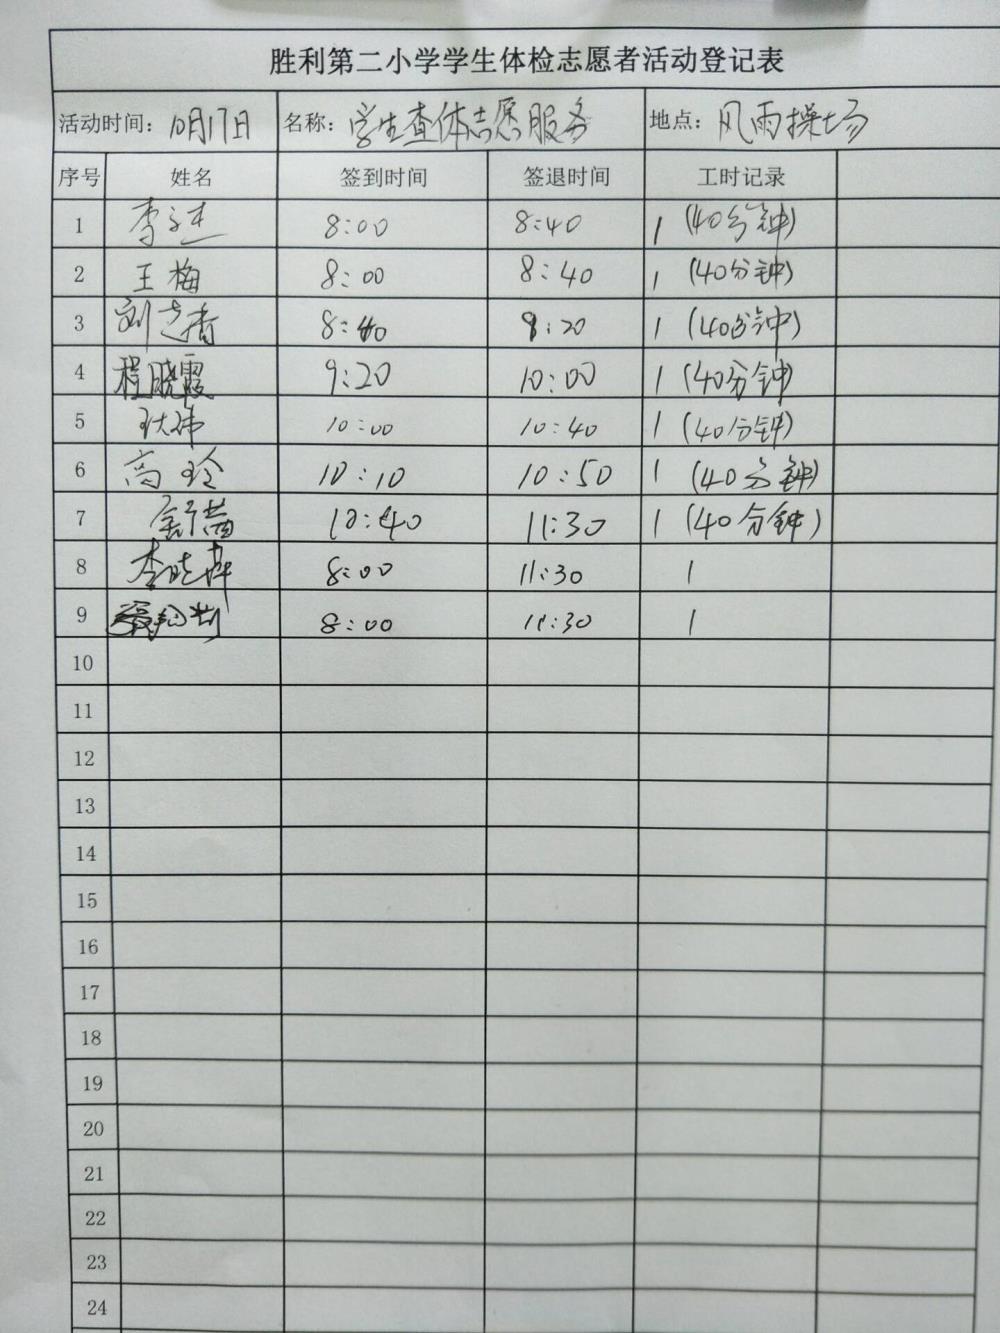 胜利第二小学学生体检志愿者活动登记表
活动时间：10月17日 名称：学生查体志愿服务 地点：风雨操场
序号 姓名 签到时间 签退时间 工时记录
1 8:00 8:40 1 (40分钟)
2 王梅 8:00 8:40 1 (40分钟)
3 8:40 9:20 1 (40分钟)
4 程晓霞 9:20 10:00 1 (40分钟)
5 10:00 10:40 1 (40分钟)
6 高玲 10:10 10:50 1 (40分钟)
7 10:40 11:30 1 (40分钟)
8 8:00 11:30 1
9 8:00 11:30 1
10
11
12
13
14
15
16
17
18
19
20
21
22
23
24